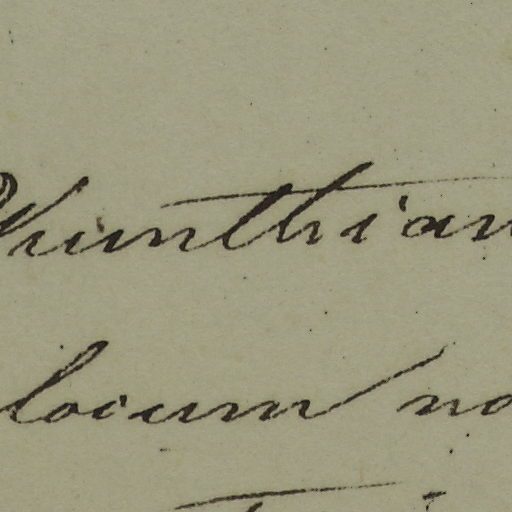 Kunthian
locum no